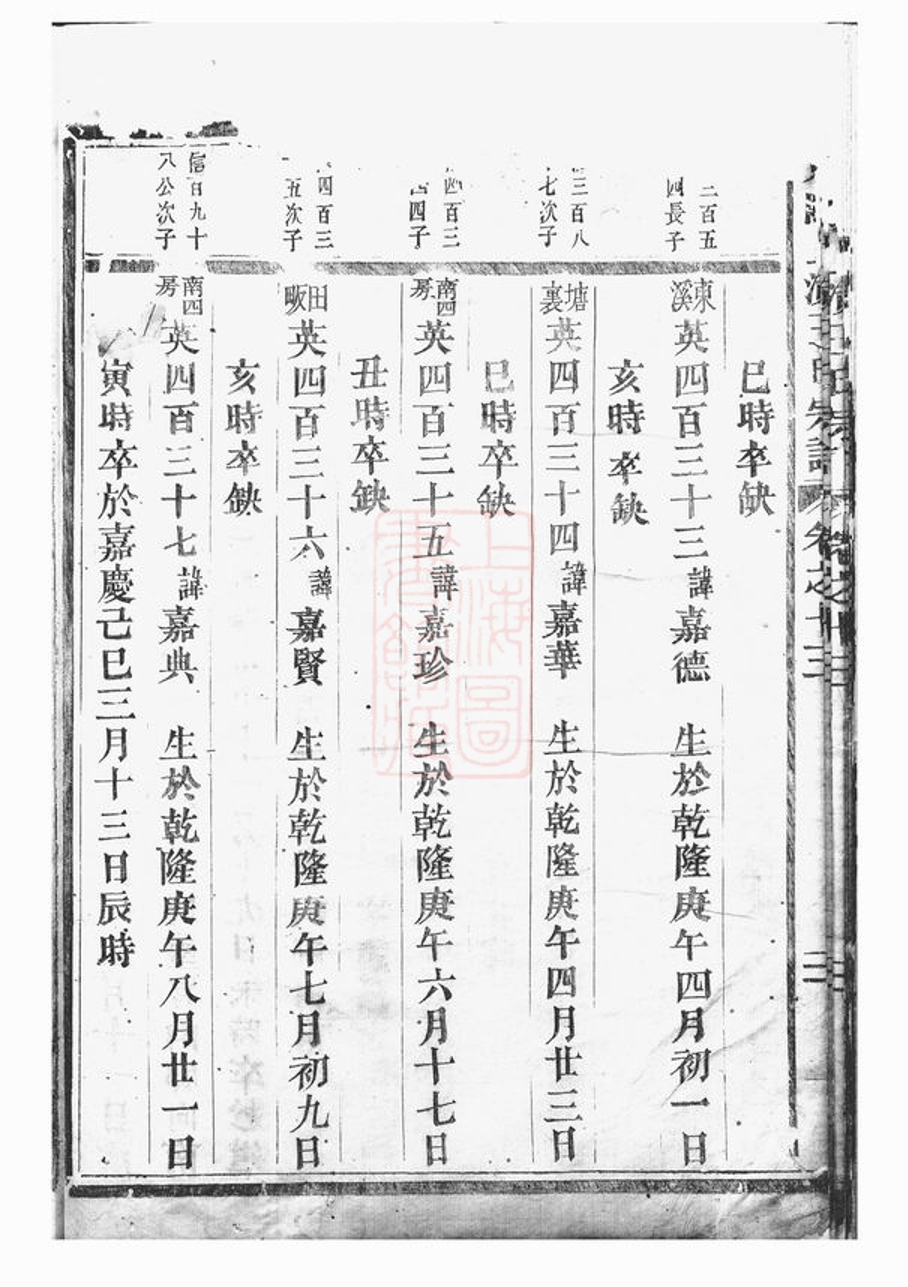 宗譜 卷之十三
二
巳時卒缺
二百五
四長子
東溪英四百三十三諱嘉德 生於乾隆庚午四月初一日
亥時卒缺
三百八
七次子
塘裏英四百三十四諱嘉華 生於乾隆庚午四月廿三日
巳時卒缺
四百三
四子
南四房英四百三十五諱嘉珍 生於乾隆庚午六月十七日
丑時卒缺
四百三
五次子
田畈英四百三十六諱嘉賢 生於乾隆庚午七月初九日
亥時卒缺
信百九十
八公次子
南四房英四百三十七諱嘉典 生於乾隆庚午八月廿一日
寅時卒於嘉慶己巳三月十三日辰時
上海圖
書館藏